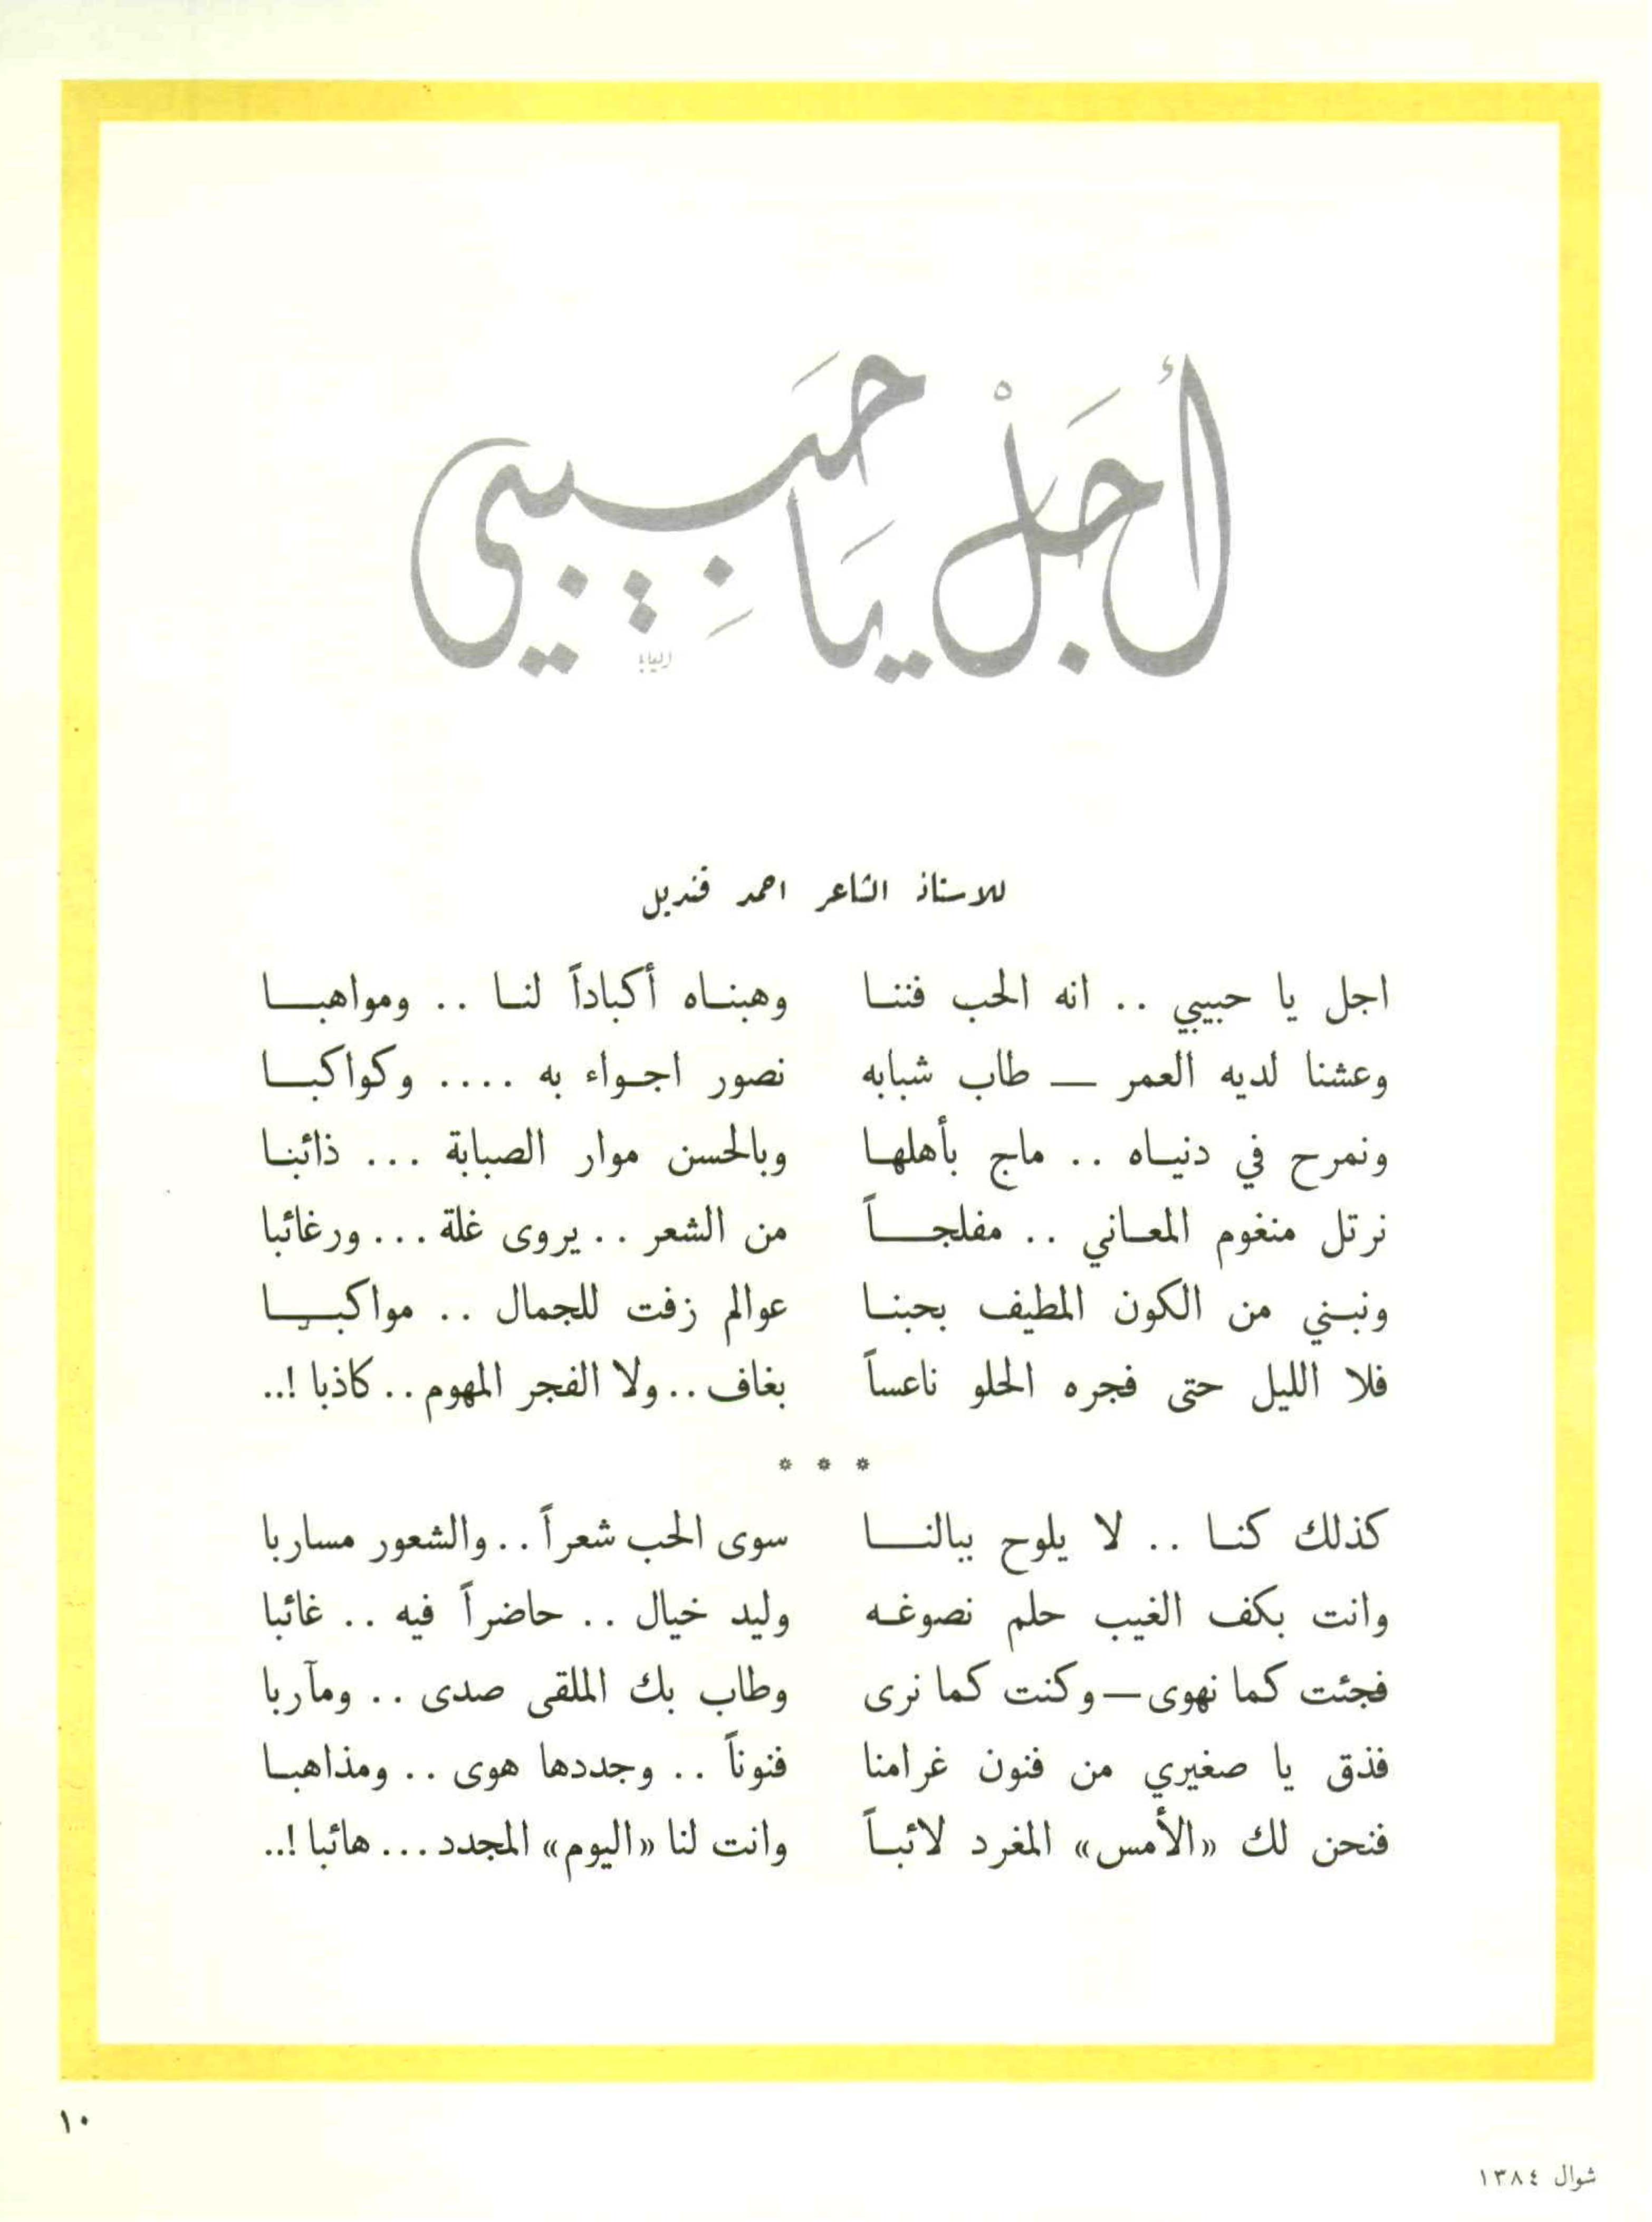 أَجَلْ يَا حَبِيبِي
للاستاذ الشاعر احمد قنديل
اجل يا حبيبي .. انه الحب فننا وهبناه أكباداً لنا .. ومواهبا
وعشنا لديه العمر — طاب شبابه نصور اجواء به .... وكواكبا
ونمرح في دنياه .. ماج بأهلها وبالحسن موار الصبابة ... ذائبا
نرتل منغوم المعاني .. مفلجاً من الشعر .. يروى غلة ... ورغائبا
ونبني من الكون المطيف بحبنا عوالم زفت للجمال .. مواكبا
فلا الليل حتى فجره الحلو ناعساً بغاف .. ولا الفجر المهوم .. كاذبا !..
* * *
كذلك كنا .. لا يلوح ببالنا سوى الحب شعراً .. والشعور مساربا
وانت بكف الغيب حلم نصوغه وليد خيال .. حاضراً فيه .. غائبا
فجئت كما نهوى — وكنت كما نرى وطاب بك الملقى صدى .. ومآربا
فذق يا صغيري من فنون غرامنا فنوناً .. وجددها هوى .. ومذاهبا
فنحن لك «الأمس» المغرد لائباً وانت لنا «اليوم» المجدد ... هائبا !..
١٠
شوال ١٣٨٤